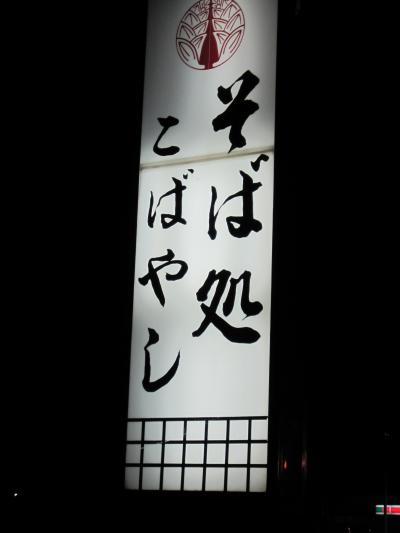 そば処
こばやし